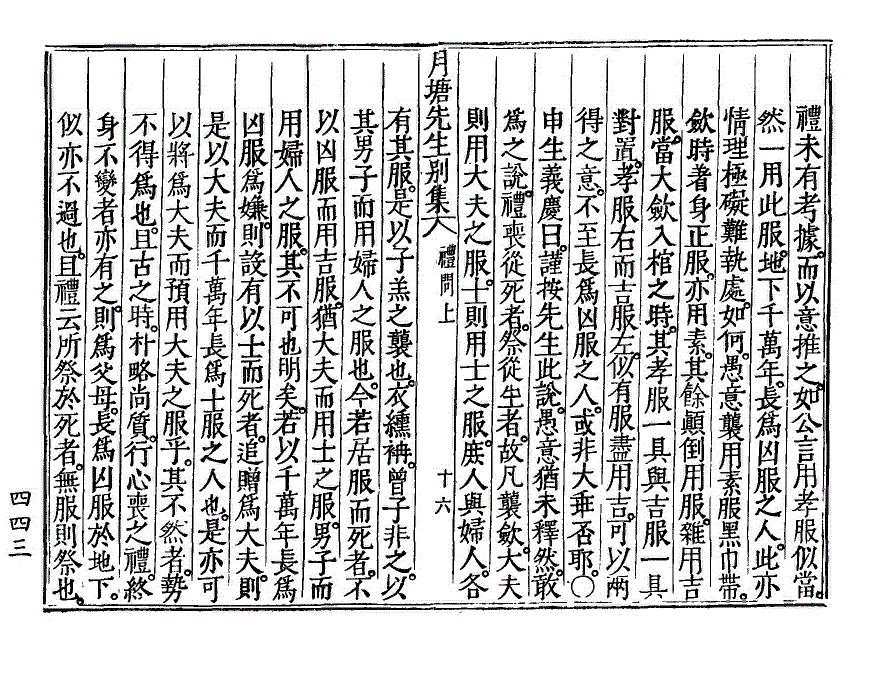 禮未有考據。而以意推之。如公言用孝服似當。
然一用此服。地下千萬年。長爲凶服之人。此亦
情理極礙難執處。如何。愚意襲用素服黑巾帶。
斂時著身正服。亦用素。其餘顚倒用服。雜用吉
服。當大斂入棺之時。其孝服一具與吉服一具
對置。孝服右而吉服左。似有服盡用吉。可以兩
得之意。不至長爲凶服之人。或非大乖否耶。○
申生義慶曰。謹按先生此說。愚意猶未釋然。敢
爲之說。禮喪從死者。祭從生者。故凡襲斂。大夫
則用大夫之服。士則用士之服。庶人與婦人。各
月塘先生別集 禮問上 十六
有其服。是以子羔之襲也。衣纁袡。曾子非之。以
其男子而用婦人之服也。今若居服而死者。不
以凶服而用吉服。猶大夫而用士之服。男子而
用婦人之服。其不可也明矣。若以千萬年長爲
凶服爲嫌。則設有以士而死者。追贈爲大夫。則
是以大夫而千萬年長爲士服之人也。是亦可
以將爲大夫而預用大夫之服乎。其不然者。勢
不得爲也。且古之時。朴略尙質。行心喪之禮。終
身不變者亦有之。則爲父母。長爲凶服於地下。
似亦不過也。且禮云所祭於死者。無服則祭也。
四四三